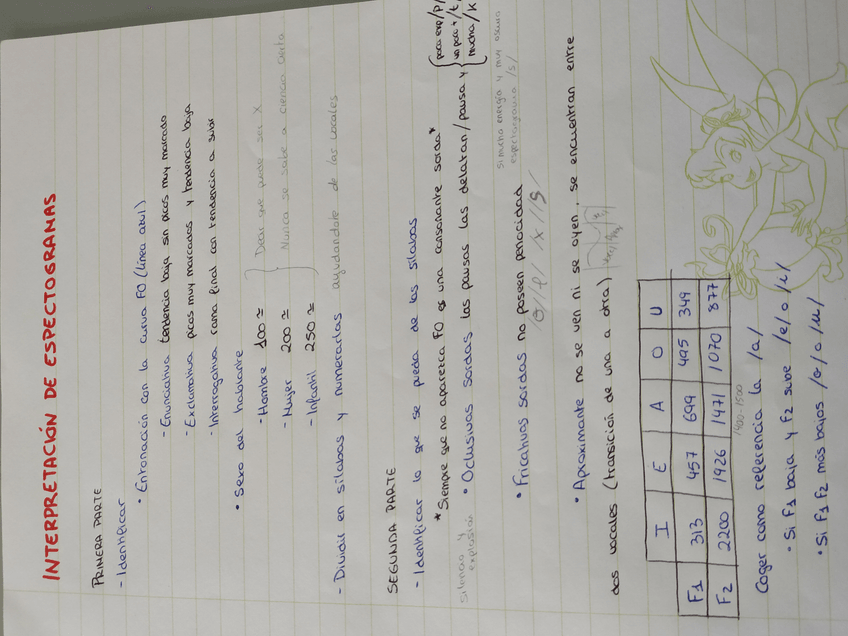 INTERPRETACIÓN DE ESPECTOGRAMAS
PRIMERA PARTE
- Identificar
• Entonación con la curva F0 (línea azul)
- Enunciativa tendencia baja sin picos muy marcado
- Exclamativa picos muy marcados y tendencia baja
- Interrogativa rama final con tendencia a subir
• Sexo del hablante
- Hombre 100 ≃
- Mujer 200 ≃
- Infantil 250 ≃
Dicar que puede ser X
Nunca se sabe a ciencia cierta
- Dividir en sílabas y numerarlas ayudándote de las vocales
SEGUNDA PARTE
- Identificar lo que se pueda de las sílabas
*Siempre que no aparezca F0 es una consonante sorda*
Silencio y explosión • Oclusivas sordas las pausas las delatan/pausa y
poca exp/p/
un poco + /t/
mucha/k
Si mucha energía y muy oscuro
espectograma /s/
• Fricativas sordas no poseen periocidad
/θ/f/ /x//s/
• Aproximante no se ven ni se oyen.. se encuentran entre
dos vocales (transición de una a otra)
I E A O U
F1 313 457 699 495 349
F2 2200 1926 1471 1070 877
1400-1500
Coger como referencia la /a/
• Si F1 baja y F2 sube /e/ o /i/
• Si F1 F2 más bajos /o/ o /u/